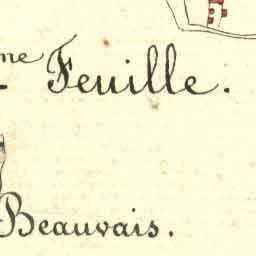 me Feuille.
Beauvais.